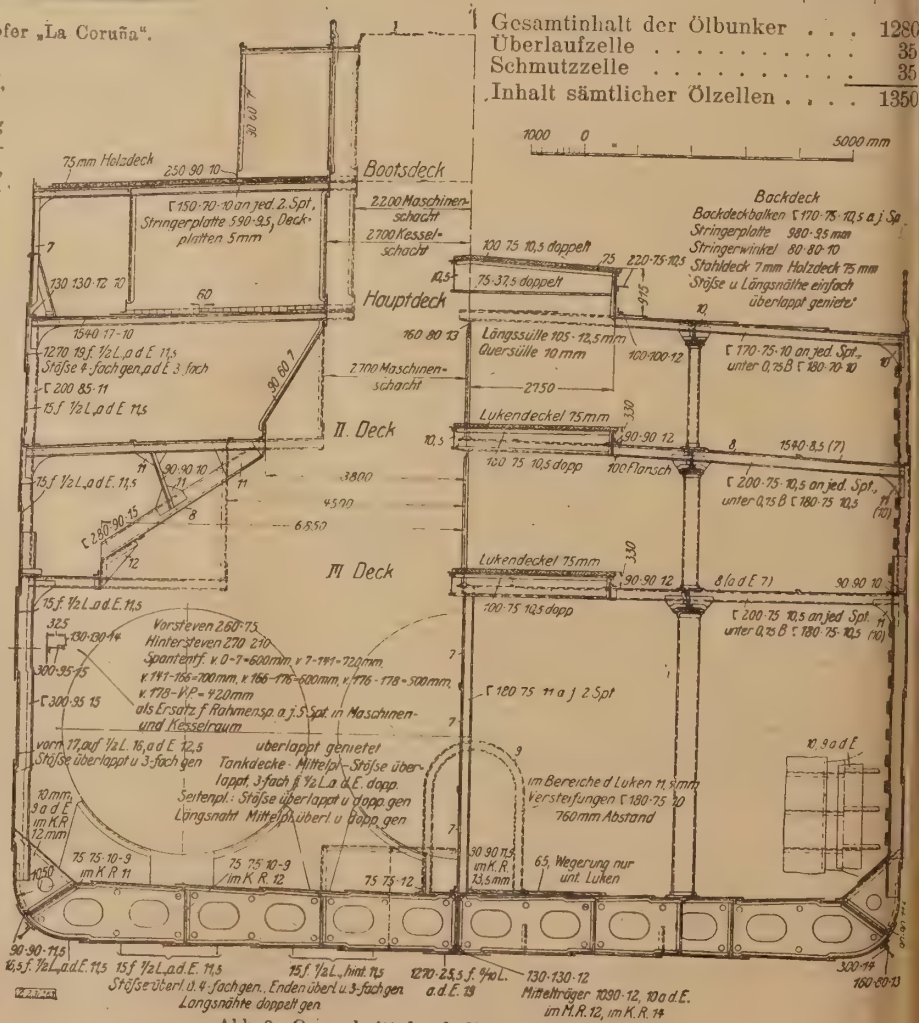 fer „La Coruña“.
Gesamtinhalt der Ölbunker . . . 1280
Überlaufzelle . . . . . . . . . . 35
Schmutzzelle . . . . . . . . . . 35
Inhalt sämtlicher Ölzellen . . . . 1350
1000 0 5000 mm
30 60 7
75 mm Holzdeck
250·90·10
Bootsdeck
[ 150·70·10 an jed. 2. Spt,
Stringerplatte 590·9,5, Deck-
platten 5mm
2200 Maschinen-
schacht
2700 Kessel-
schacht
7
130 130·12 10
60
Hauptdeck
Backdeck
Backdeckbalken [ 170·75·10,5 a j Sp
Stringerplatte 980·9,5 mm
Stringerwinkel 80·80·10
Stahldeck 7mm Holzdeck 75 mm
Stöße u Längsnäthe einfach
überlappt genietet
100 75 10,5 doppelt
75
220·75·10,5
10,5
75·37,5 doppelt
915
10,
1540·17·10
1270 19 f. ½ L, a d E 11,5
Stöße 4-fach gen, a d E 3 fach
[ 200 85·11
15 f ½ L, a d E 11,5
90 60 7
160·80·13
Längssülle 105·12,5mm
Quersülle 10 mm
100·100·12
2750
[ 170·75·10 an jed. Spt.,
unter 0,75 B [ 180·70·10
10
2700 Maschinen-
schacht
II. Deck
Lukendeckel 75mm
330
10,5
90·90 12
8,
1540·8,5 (7)
100 75 10,5 dopp
100 Flansch
[ 200·75·10,5 an jed. Spt.,
unter 0,75 B [ 180·75 10,5
11
(10)
15 f ½ L, a d E. 11,5
11
90·90 10
11
11
[ 280·90·15
8
12
3800
4500
6550
III Deck
Lukendeckel 75mm
330
90·90 12
8 (a d E 7)
90·90 10
100·75 10,5 dopp
[ 200·75 10,5 an jed Spt.
unter 0,75 B [ 180·75·10,5
11
(10)
15 f. ½ L. a d. E. 11,5
325
130·130·14
300·95·15
[ 300·95 15
Vorsteven 260·75
Hintersteven 270 210
Spantentf. v. 0-7=600mm, v 7-141=720mm,
v. 141-166=700mm, v. 166-176=600mm, v. 176-178=500mm,
v. 178-V.P.=420mm
als Ersatz f Rahmensp. a j. 5 Spt. in Maschinen-
und Kesselraum
[ 180 75 11 a j 2 Spt
7
7
7
vorn 17, auf ½ L. 16, a d E. 12,5
Stöße überlappt u 3-fach gen
überlappt genietet
Tankdecke - Mittelpl - Stöße über-
lappt, 3-fach f. ½ L. a d. E. dopp.
Seitenpl.: Stöße überlappt u dopp. gen
Längsnaht Mittelpl. überl. u dopp gen
9
im Bereiche d Luken 11,5mm
Versteifungen [ 180·75·10
760mm Abstand
10, 9 a d E
10 mm,
9 a d E
im K.R
12 mm
1050
75 75·10·9
im K R 11
75 75·10·9
im K.R. 12
75 75·12
90 90 11,5
im K. R.
13,5 mm
65, Wegerung nur
unt. Luken
90·90·11,5
16,5 f. ½ L, a d. E. 11,5
15 f ½ L, a d. E. 11,5
Stöße überl. u. 4-fach gen., Enden überl u 3-fach gen
Längsnähte doppelt gen
15 f. ½ L., hint. 11,5
1270·25,5 f. ⁶/₁₀ L.
a. d. E. 19
130·130·12
Mittelträger 1090·12, 10 a d E.
im M.R. 12, im K.R. 14
300·14
160·80·13